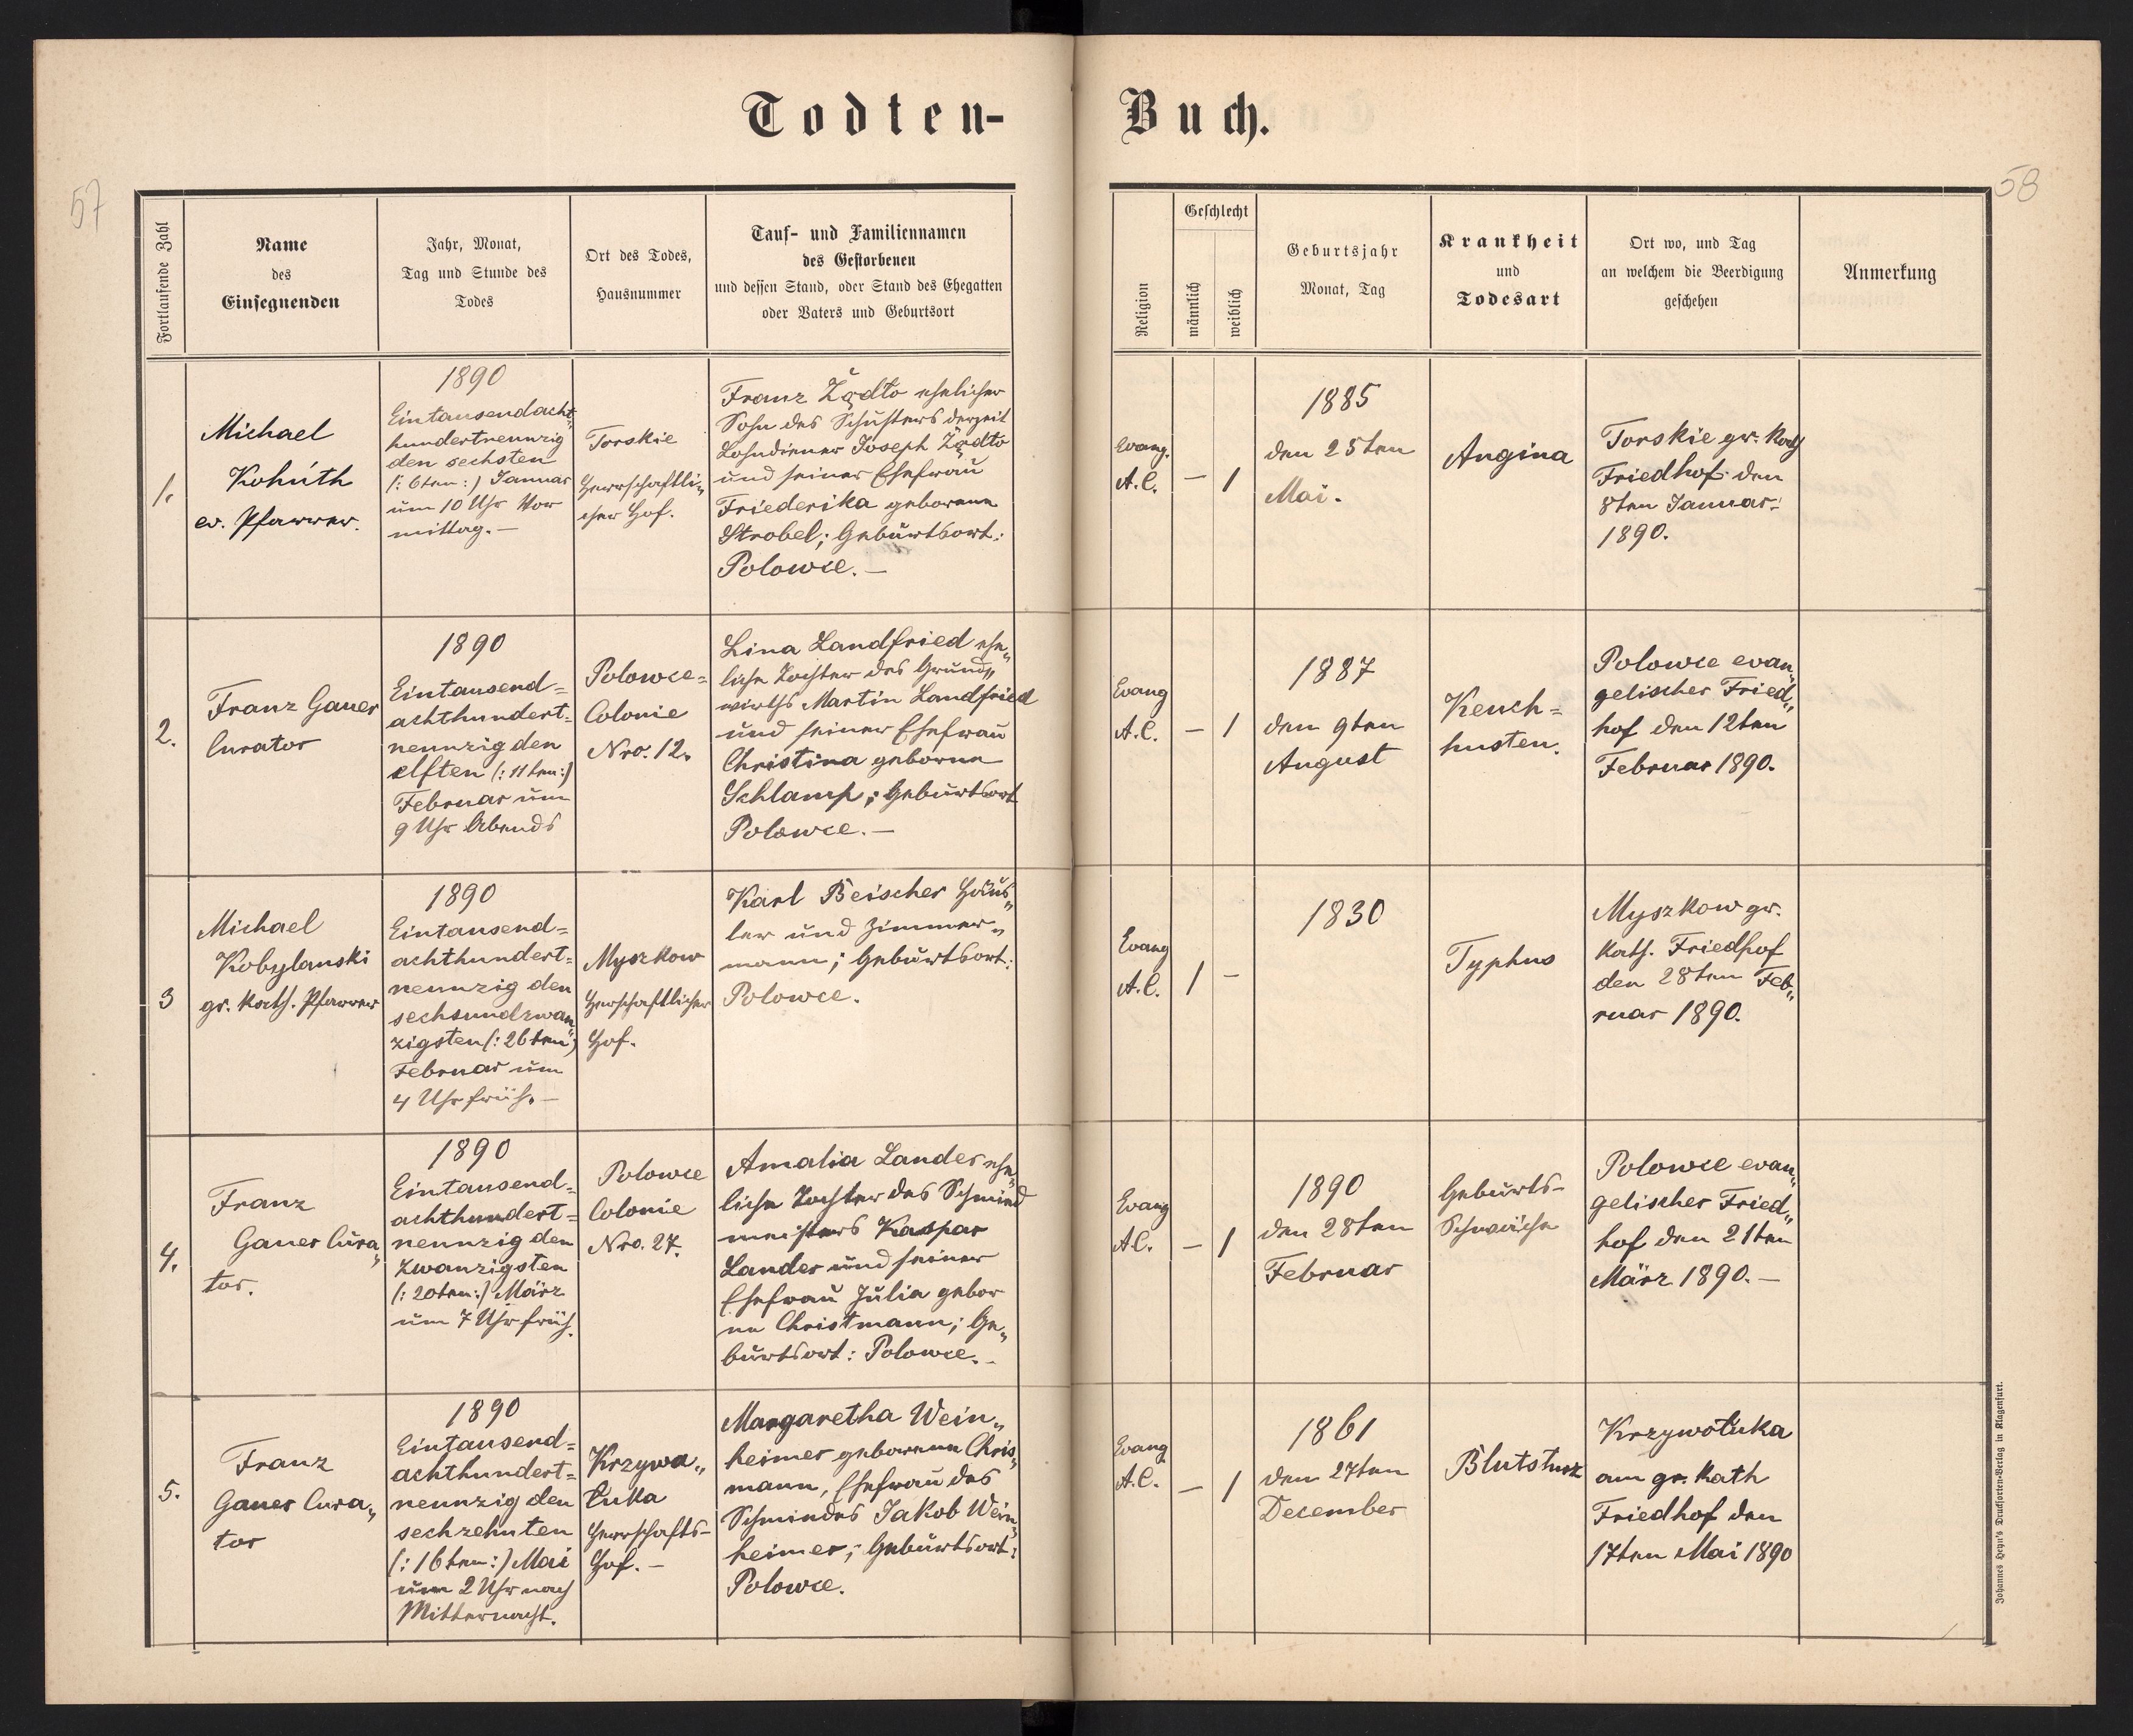 Todten-
Buch.
57
58
Fortlaufende Zahl
Name
des
Einsegnenden
Jahr, Monat,
Tag und Stunde des
Todes
Ort des Todes,
Hausnummer
Tauf- und Familiennamen
des Gestorbenen
und dessen Stand, oder Stand des Ehegatten
oder Vaters und Geburtsort
Religion
Geschlecht
männlich
weiblich
Geburtsjahr
Monat, Tag
Krankheit
und
Todesart
Ort wo, und Tag
an welchem die Beerdigung
geschehen
Anmerkung
1.
Michael
Kohúth
ev. Pfarrer.
1890
Eintausendacht„
hundertneunzig
den sechsten
(: 6ten :) Januar
um 10 Uhr Vor
mittag. —
Torskie
Herrschaftli„
cher Hof.
Franz Żądto ehelicher
Sohn des Schusters derzeit
Lohndiener Joseph Żądto
und seiner Ehefrau
Friederika geborene
Strobel; Geburtsort:
Polowce. —
Evang.
A.C.
— 1
1885
den 25ten
Mai.
Angina
Torskie gr. Kath
Friedhof den
8ten Januar:
1890.
2.
Franz Gauer
Curator
1890
Eintausend=
achthundert=
neunzig den
elften (: 11ten :)
Februar um
9 Uhr Abends
Polowce=
Colonie
Nro. 12.
Lina Landfried ehe„
liche Tochter des Grund„
wirths Martin Landfried
und seiner Ehefrau
Christina geborne
Schlamp; Geburtsort
Polowce. —
Evang
A.C.
— 1
1887
den 9ten
August
Keuch=
husten.
Polowce evan„
gelischer Fried„
hof den 12ten
Februar 1890.
3
Michael
Kobylanski
gr. Kath. Pfarrer
1890
Eintausend=
achthundert=
neunzig den
sechsundzwan„
zigsten (: 26ten :)
Februar um
4 Uhr früh. —
Myszkow
Herschaftlicher
Hof.
Karl Beischer Häus„
ler und Zimmer„
mann; Geburtsort:
Polowce.
Evang
A.C.
1 —
1830
Typhus
Myszkow gr.
Kath. Friedhof
den 28ten Feb„
ruar 1890.
4.
Franz
Gauer Cura„
tor.
1890
Eintausend=
achthundert=
neunzig den
zwanzigsten
(: 20ten :) März
um 7 Uhr früh.
Polowce
Colonie
Nro. 27.
Amalia Lander ehe„
liche Tochter des Schmied
meisters Kaspar
Lander und seiner
Ehefrau Julia gebor
ne Christmann; Ge„
burtsort: Polowce. –
Evang
A.C.
— 1
1890
den 28ten
Februar
Geburts-
Schwäche
Polowce evan„
gelischer Fried„
hof den 21ten
März 1890. —
5.
Franz
Gauer Cura„
tor
1890
Eintausend=
achthundert=
neunzig den
sechzehnten
(: 16ten :) Mai
um 2 Uhr nach
Mitternacht.
Krzywo„
łuka
Herrschafts-
Hof. —
Margaretha Wein„
heimer geborene Chris„
mann, Ehefrau des
Schmiedes Jakob Wein„
heimer; Geburtsort:
Polowce.
Evang
A.C.
— 1
1861
den 27ten
December
Blutsturz
Krzywołuka
am gr. Kath
Friedhof den
17ten Mai 1890
Johannes Heyn's Drucksorten-Verlag in Klagenfurt.